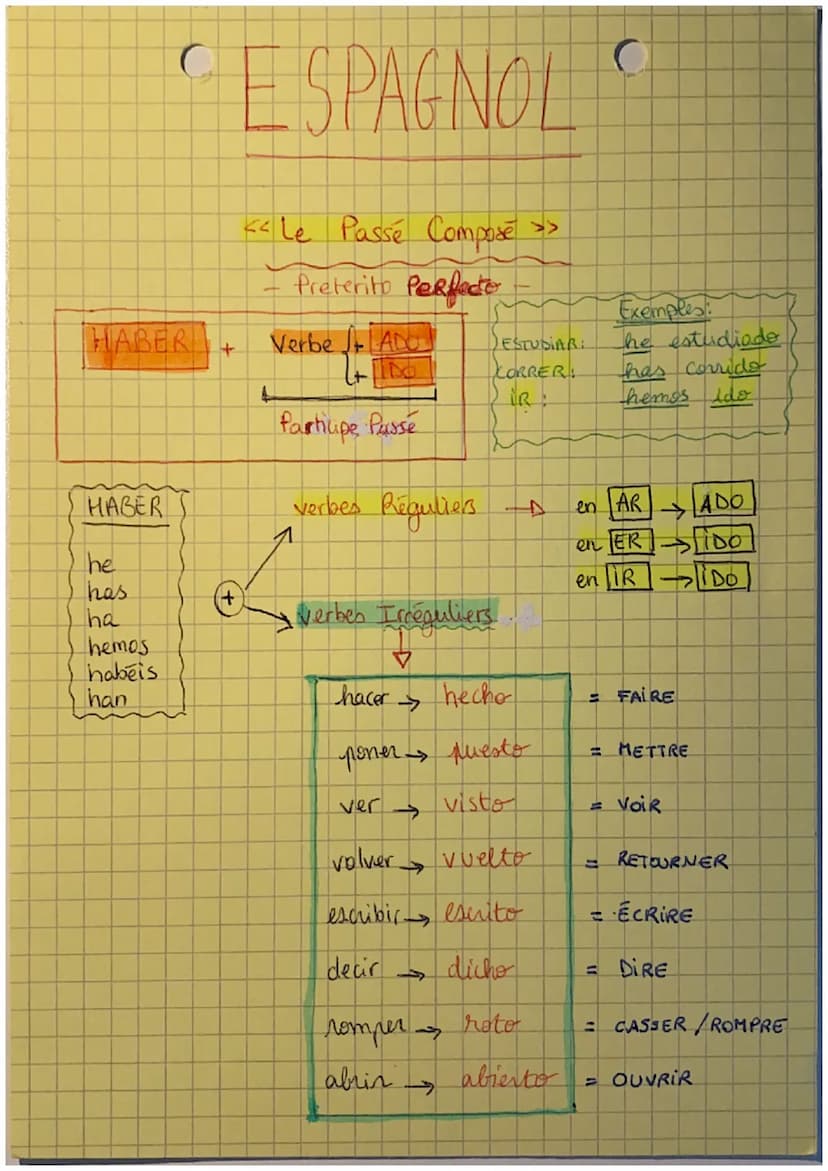 ESPAGNOL
<< Le Passé Composé >>
- Preterito Perfecto -
HABER + Verbe + ADO
+ IDO
Participe Passé
Exemples:
ESTUDIAR: he estudiado
CORRER: has corrido
IR: hemos ido
HABER
he
has
ha
hemos
habéis
han
+
verbes Réguliers → en AR → ADO
en ER → IDO
en IR → IDO
verbes Irréguliers
hacer → hecho = FAIRE
poner → puesto = METTRE
ver → visto = VOIR
volver → vuelto = RETOURNER
escribir → escrito = ÉCRIRE
decir → dicho = DIRE
romper → roto = CASSER / ROMPRE
abrir → abierto = OUVRIR